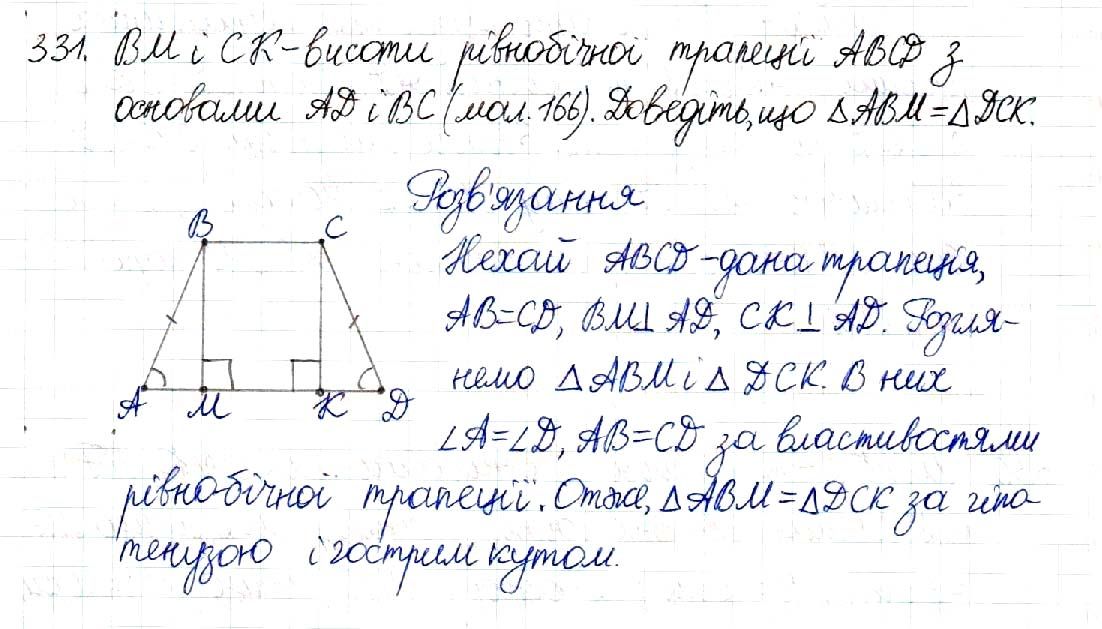 331. BM і CK-висоти рівнобічної трапеції ABCD з
основами AD і BC (мал. 166). Доведіть, що △ABM=△DCK.
Розв'язання
B C
Нехай ABCD-дана трапеція,
AB=CD, BM⊥AD, CK⊥AD. Розгля-
немо △ABM і △DCK. В них
A M K D
∠A=∠D, AB=CD за властивостями
рівнобічної трапеції. Отже, △ABM=△DCK за гіпо-
тенузою і гострим кутом.